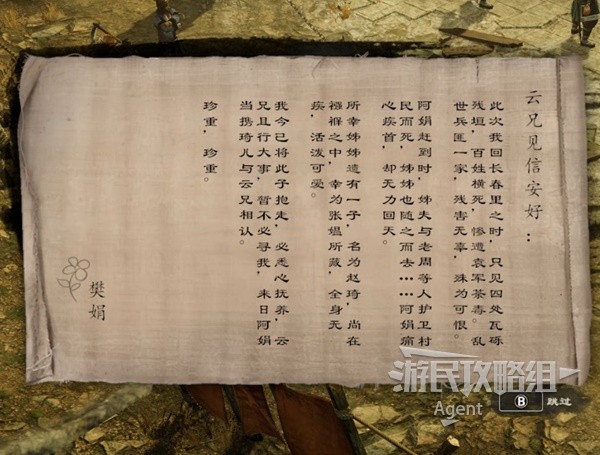 云兄见信安好：
此次我回长春里之时，只见四处瓦砾
残垣，百姓横死，惨遭袁军荼毒。乱
世兵匪一家，残害无辜，殊为可恨。
阿娟赶到时，姊夫与老周等人护卫村
民而死，姊姊也随之而去……阿娟痛
心疾首，却无力回天。
所幸姊姊遗有一子，名为赵琦，尚在
襁褓之中，幸为张媪所藏，全身无
疾，活泼可爱。
我今已将此子抱走，必悉心抚养，云
兄且行大事，暂不必寻我，来日阿娟
当携琦儿与云兄相认。
珍重，珍重。
樊娟
游民攻略组
Agent
B 跳过